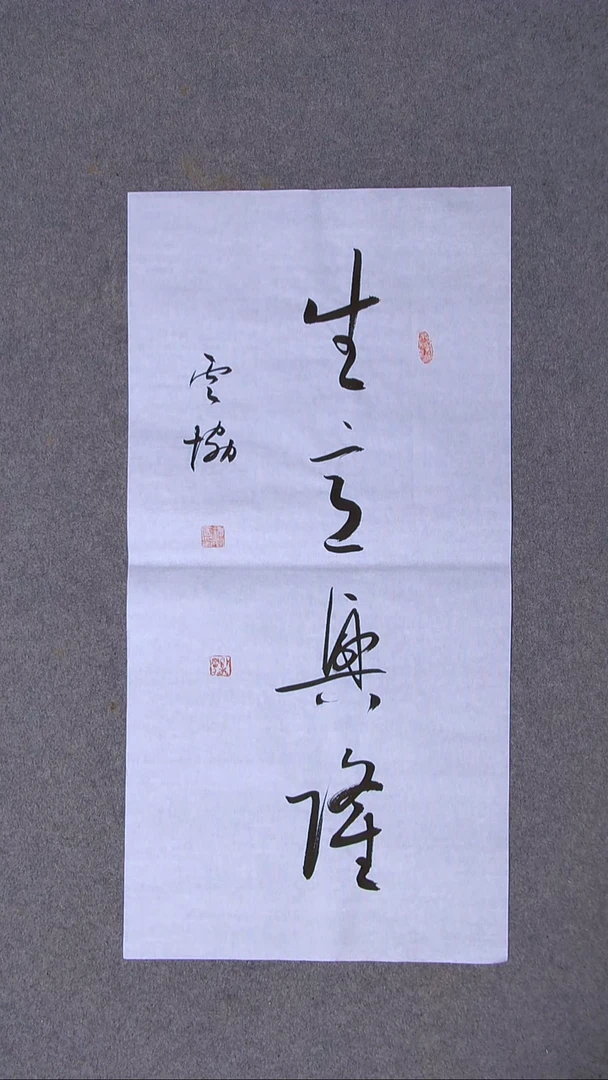 生意興隆
雲協